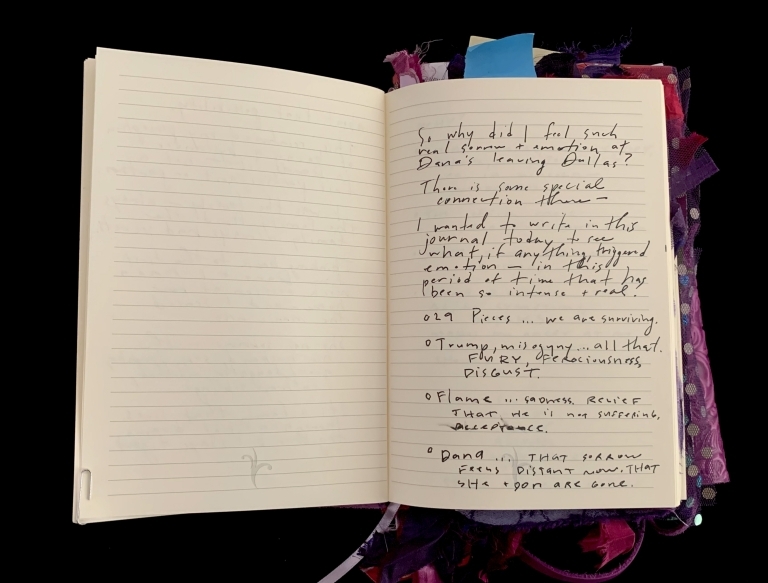 So why did I feel such
real sorrow + emotion at
Dana's leaving Dallas?
There is some special
connection there —
I wanted to write in this
journal today to see
what, if anything, triggered
emotion — in this
period of time that has
been so intense + real.
o 29 Pieces ... we are surviving.
o Trump, misogyny ... all that.
FURY, FEROCIOUSNESS,
DISGUST.
o Flame ... SADNESS, RELIEF
THAT HE is not SUFFERING,
acceptance.
o Dana ... THAT SORROW
FEELS DISTANT NOW. THAT
SHE + DON ARE GONE.